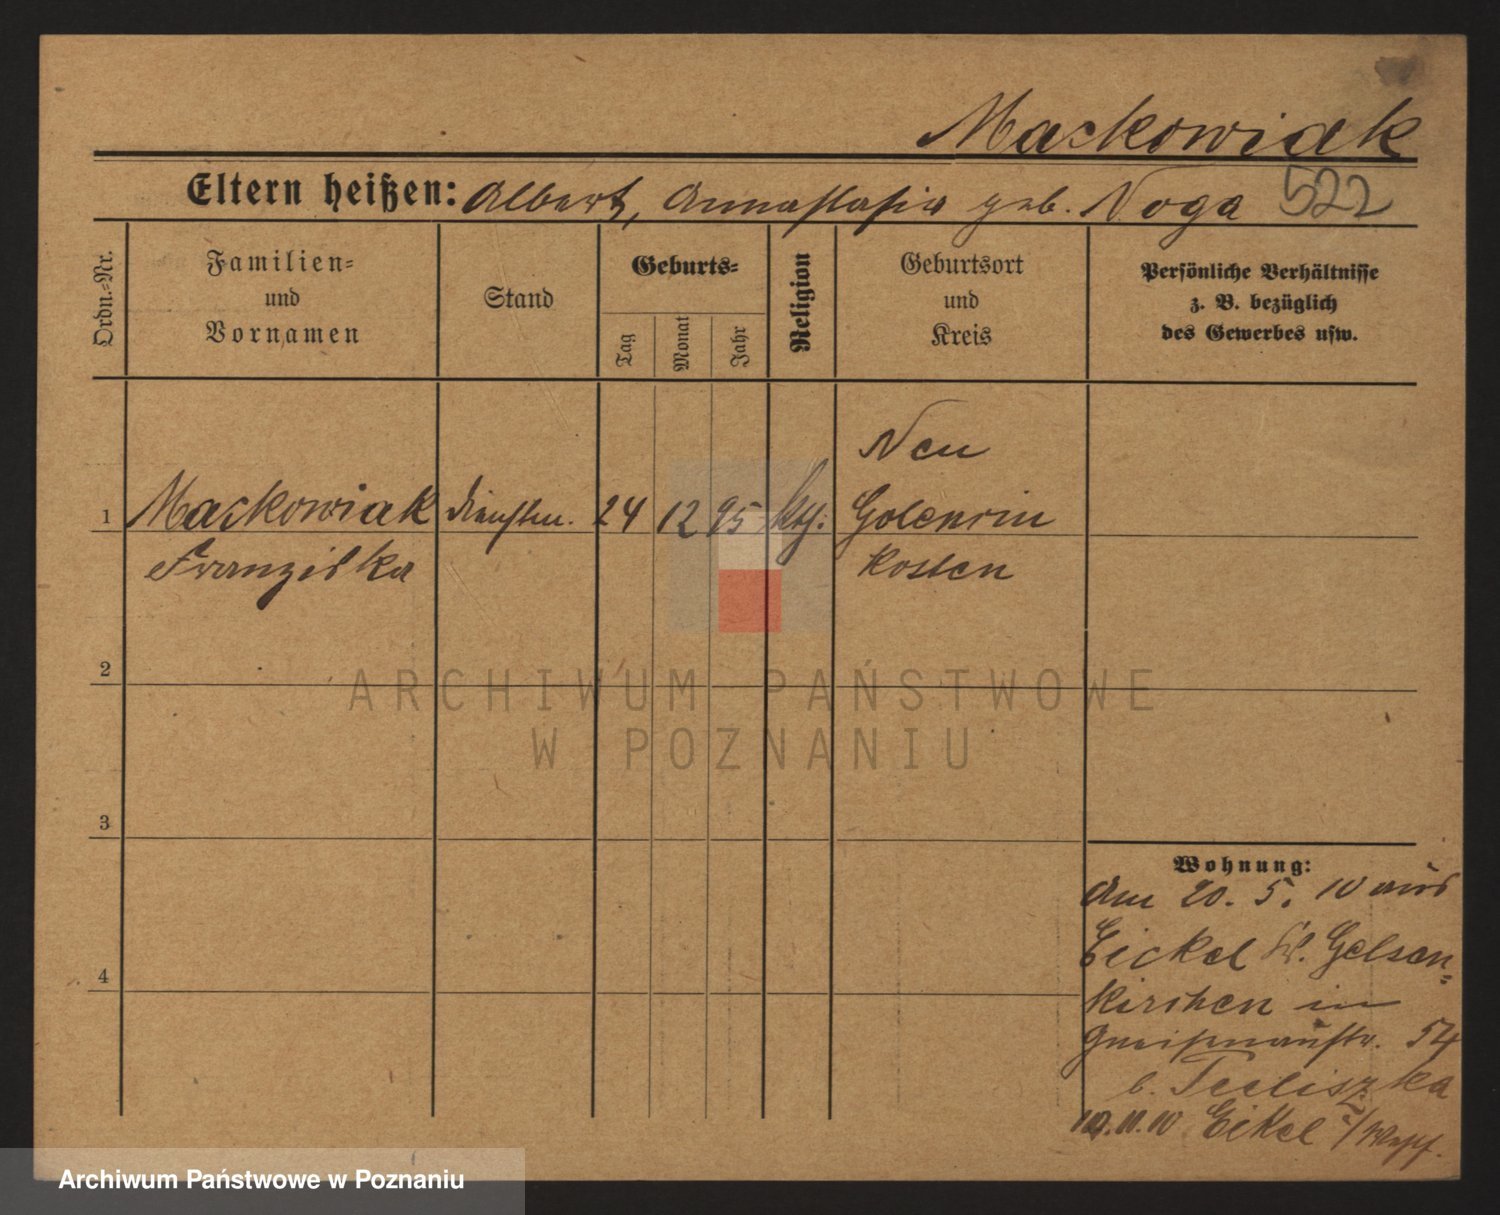 Mackowiak
Eltern heißen: Albert, Annastasia geb. Noga 522
Ordn.-Nr.
Familien-
und
Vornamen
Stand
Geburts-
Tag
Monat
Jahr
Religion
Geburtsort
und
Kreis
Persönliche Verhältnisse
z. B. bezüglich
des Gewerbes usw.
Neu
1 Mackowiak 24 12 95 kth. Golenvin
Franziska Kosten
2
3
4
Wohnung:
Am 20. 5. 10 aus
Eickel Kr. Gelsen-
kirchen in
Gneisenaustr. 54
b.
10.11.10 Eikel i/Westf.
ARCHIWUM PAŃSTWOWE
W POZNANIU
Archiwum Państwowe w Poznaniu